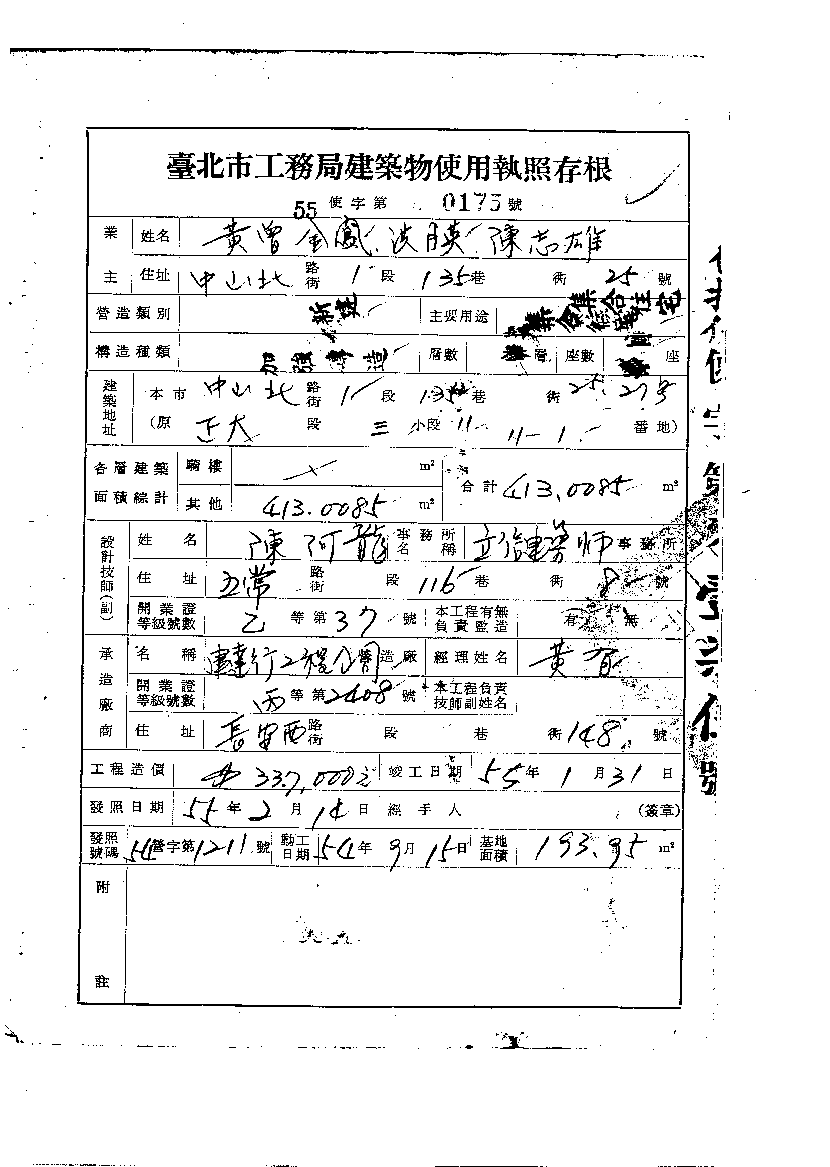 臺北市工務局建築物使用執照存根
55 使字第 0175 號
業主 姓名 黃曾金鳳、洪月英 陳志雄
住址 中山北 路街 1 段 135 巷 街 25 號
營造類別 新建 主要用途 集合住宅
構造種類 加強磚造 層數 層 座數 座
建築地址 本市 中山北 路街 1 段 135 巷 街 25.27 號
(原 正大 段 三 小段 11 11-1 番地)
各層建築面積綜計 騎樓 m² 合計 413.0085 m²
其他 413.0085 m²
設計技師(副) 姓名 陳阿龍 事務所名稱 立信建築師 事務所
住址 五常 路街 段 116 巷 街 8 號
開業證等級號數 乙 等第 37 號 本工程有無負責監造 有 無
承造廠商 名稱 建達行工程公司 營造廠 經理姓名 黃
開業證等級號數 丙 等第 2408 號 本工程負責技師副姓名
住址 長安西 路街 段 巷 街 148 號
工程造價 337,000元 竣工日期 55 年 1 月 31 日
發照日期 55 年 2 月 14 日 經手人 (簽章)
發照號碼 54 營字第 1211 號 動工日期 54 年 9 月 15 日 基地面積 193.95 m²
附註